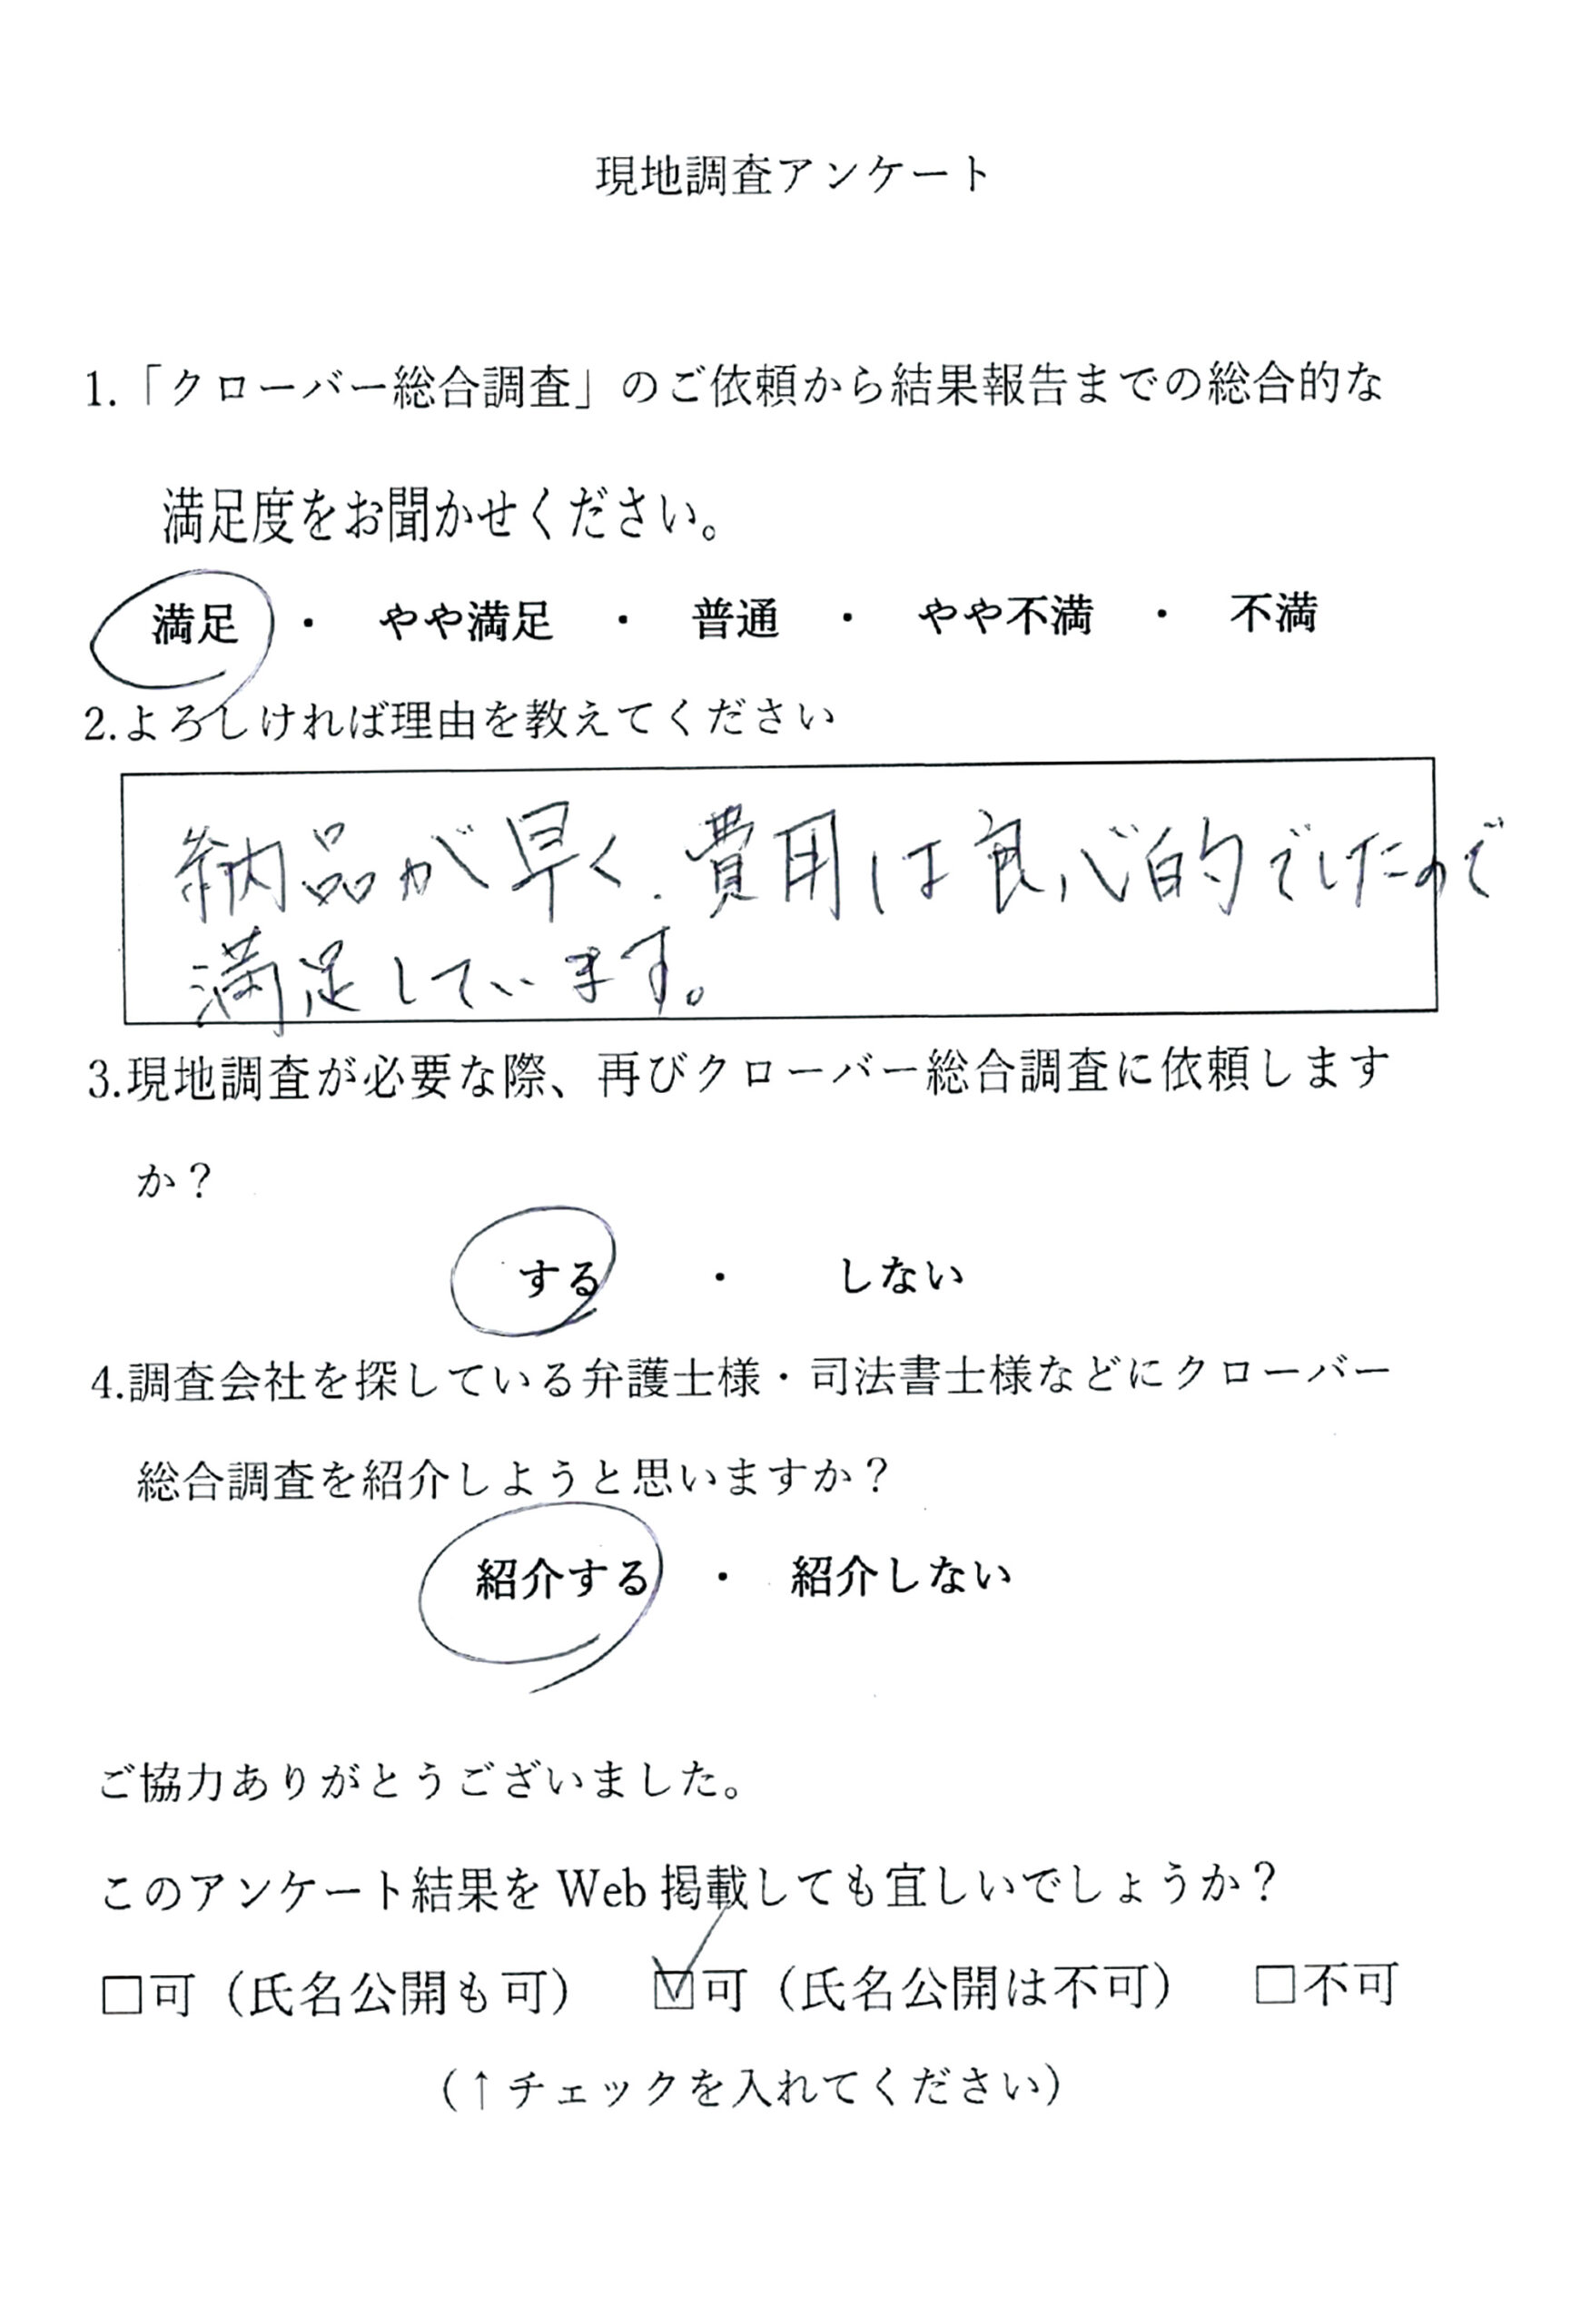 現地調査アンケート
1.「クローバー総合調査」のご依頼から結果報告までの総合的な
満足度をお聞かせください。
満足 ・ やや満足 ・ 普通 ・ やや不満 ・ 不満
2.よろしければ理由を教えてください
納品が早く、費用は良心的でしたので
満足しています。
3.現地調査が必要な際、再びクローバー総合調査に依頼します
か？
する ・ しない
4.調査会社を探している弁護士様・司法書士様などにクローバー
総合調査を紹介しようと思いますか？
紹介する ・ 紹介しない
ご協力ありがとうございました。
このアンケート結果を Web 掲載しても宜しいでしょうか？
□可（氏名公開も可） ☑可（氏名公開は不可） □不可
（↑チェックを入れてください）